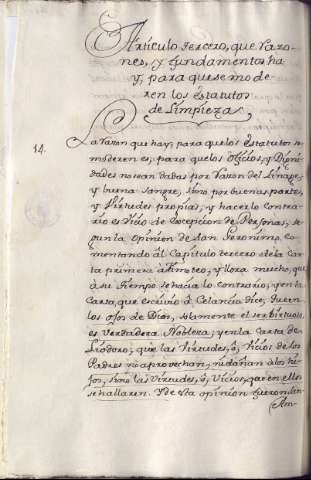 Articulo tercero, que razo-
nes, y fundamentos ha
y, para que se mode-
ren los estatutos
de Limpiezas
14. La razon que hay, para que los Estatutos se
moderen es, para que los oficios, y Digni-
dades no sean dadas por razon del Linage,
y buena sangre, sino por buenas partes,
y Virtudes propias, y hacerlo contra-
rio es vicio de excepcion de Personas, se-
gun la opinion de san Geronimo, co-
mentando al Capitulo tercero de la car-
ta primera à Timoteo, y llora mucho, que
à su tiempo se hacia lo contrario, y en la
Carta, que escrivio à Celancia dice, que en
los ojos de Dios, solamente el ser birtuoso,
es verdadera Nobleza; y en la carta de
Eliodoro; que las virtudes, ò, vicios de los
Padres ni aprovechan, ni dañan à los hi-
jos, sino las virtudes, ò, vicios, que en ellos
se hallaren. Y de esta opinion fueron san
Am-